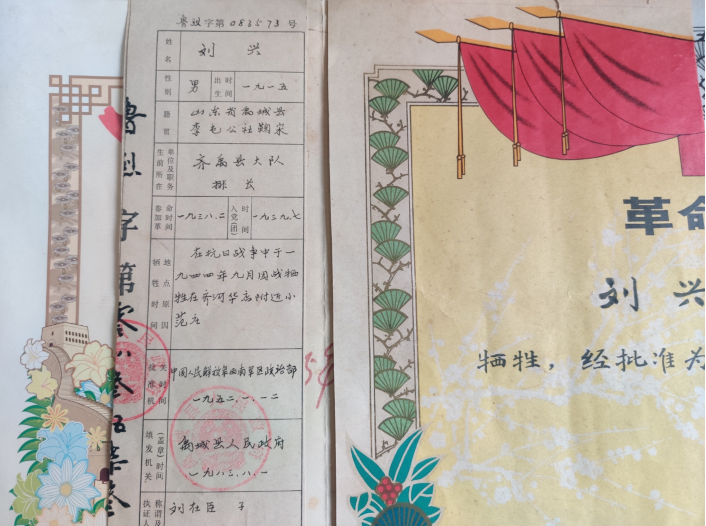 鲁烈字第083573号
姓名 刘兴
性别 男 出生时间 一九一五
籍贯 山东省禹城县
李屯公社鞠家
生前所在单位及职务 齐禹县大队
排长
参加革命时间 一九三八.二 入党(团)时间 一九三九.七
牺牲时间地点原因 在抗日战争中于一
九四四年九月因战牺
牲在齐河华店附近小
范庄
批准机关时间 中国人民解放军西南军区政治部
一九五二.一.一二
填发机关(盖章)时间 禹城县人民政府
一九八三.八.一
执证人称谓及 刘在臣 子
鲁烈字第零八叁五柒叁
革命
刘兴
牺牲，经批准为